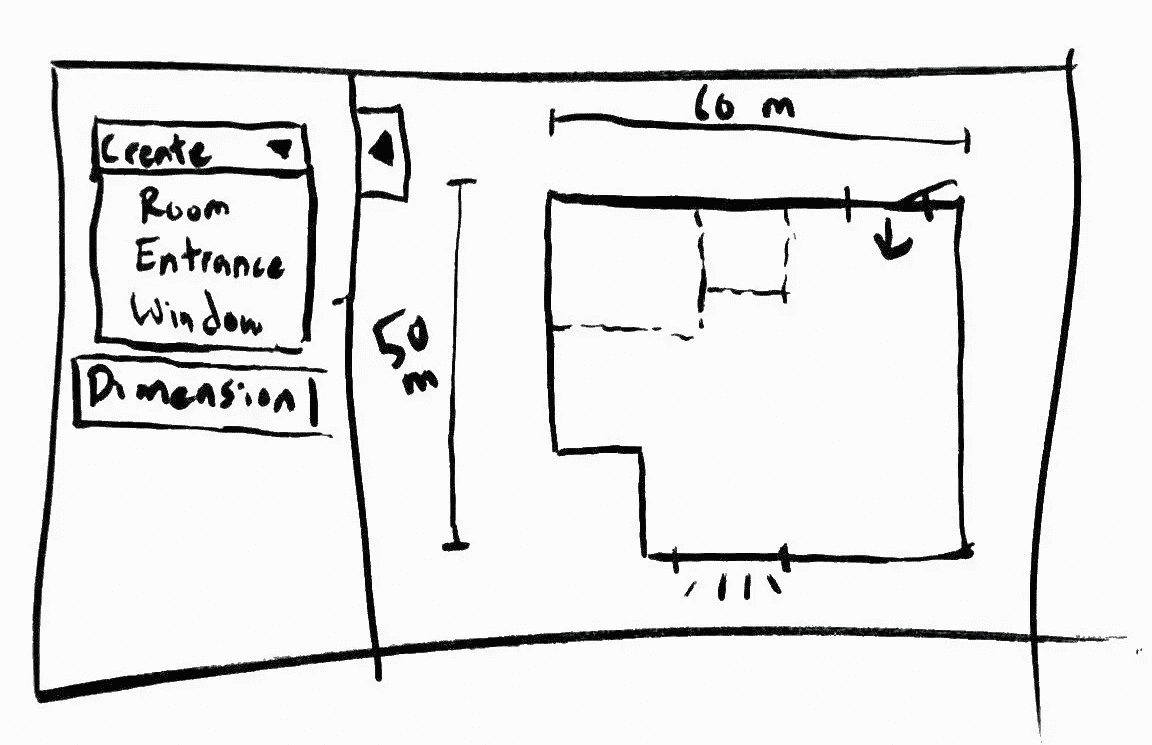 Create
Room
Entrance
Window
Dimension
60 m
50
m